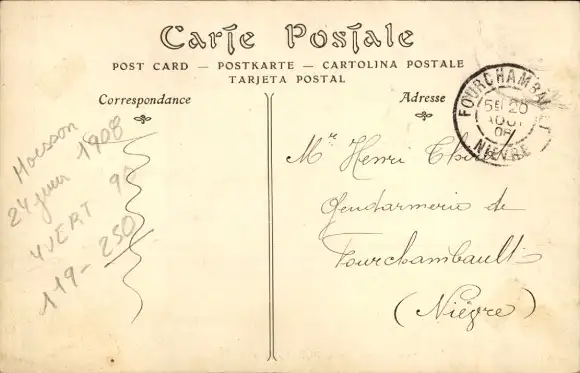 Carte Postale
POST CARD — POSTKARTE — CARTOLINA POSTALE
TARJETA POSTAL
Correspondance
Adresse
FOURCHAMBAULT
20
08
NIÈVRE
Mr Henri
Gendarmerie de
Fourchambault
(Nièvre)
24 1908
YVERT
119 - 250